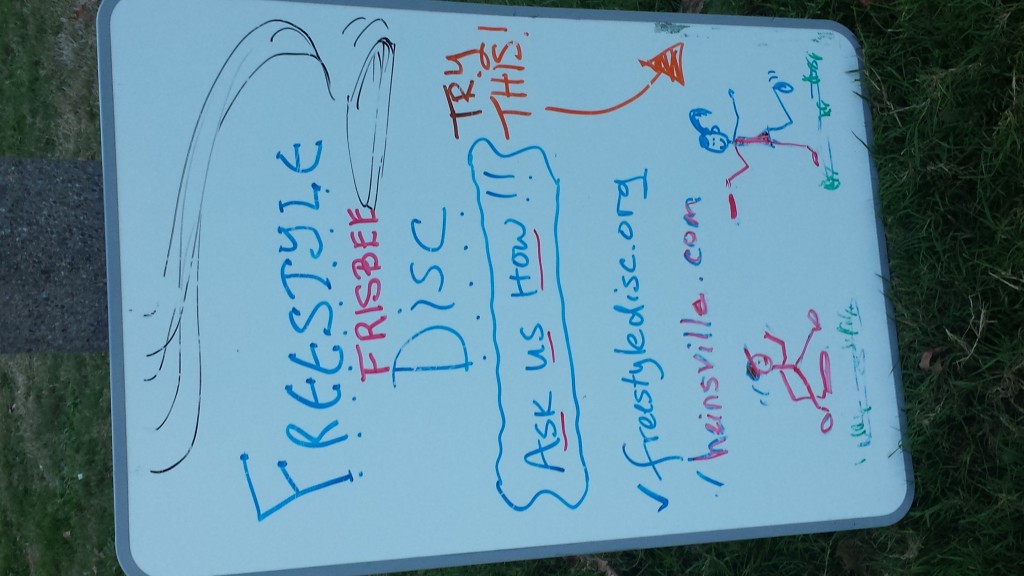 FREESTYLE
FRISBEE
DISC
TRY
THIS!
ASK US HOW!!
freestyledisc.org
heinsville.com